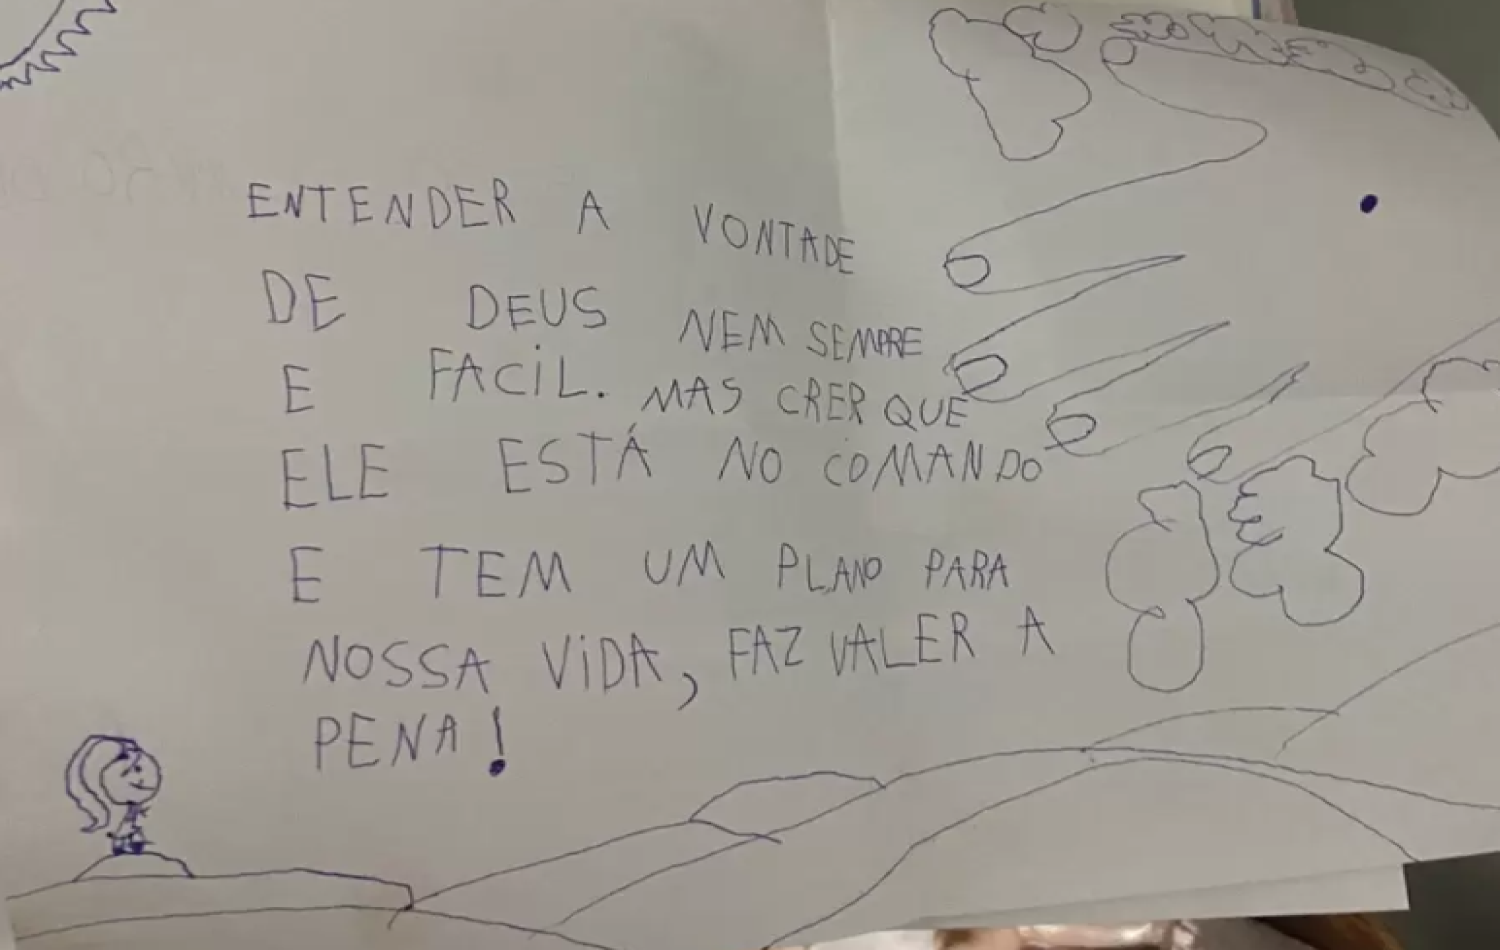 ENTENDER A VONTADE
DE DEUS NEM SEMPRE
E FACIL. MAS CRER QUE
ELE ESTÁ NO COMANDO
E TEM UM PLANO PARA
NOSSA VIDA, FAZ VALER A
PENA!